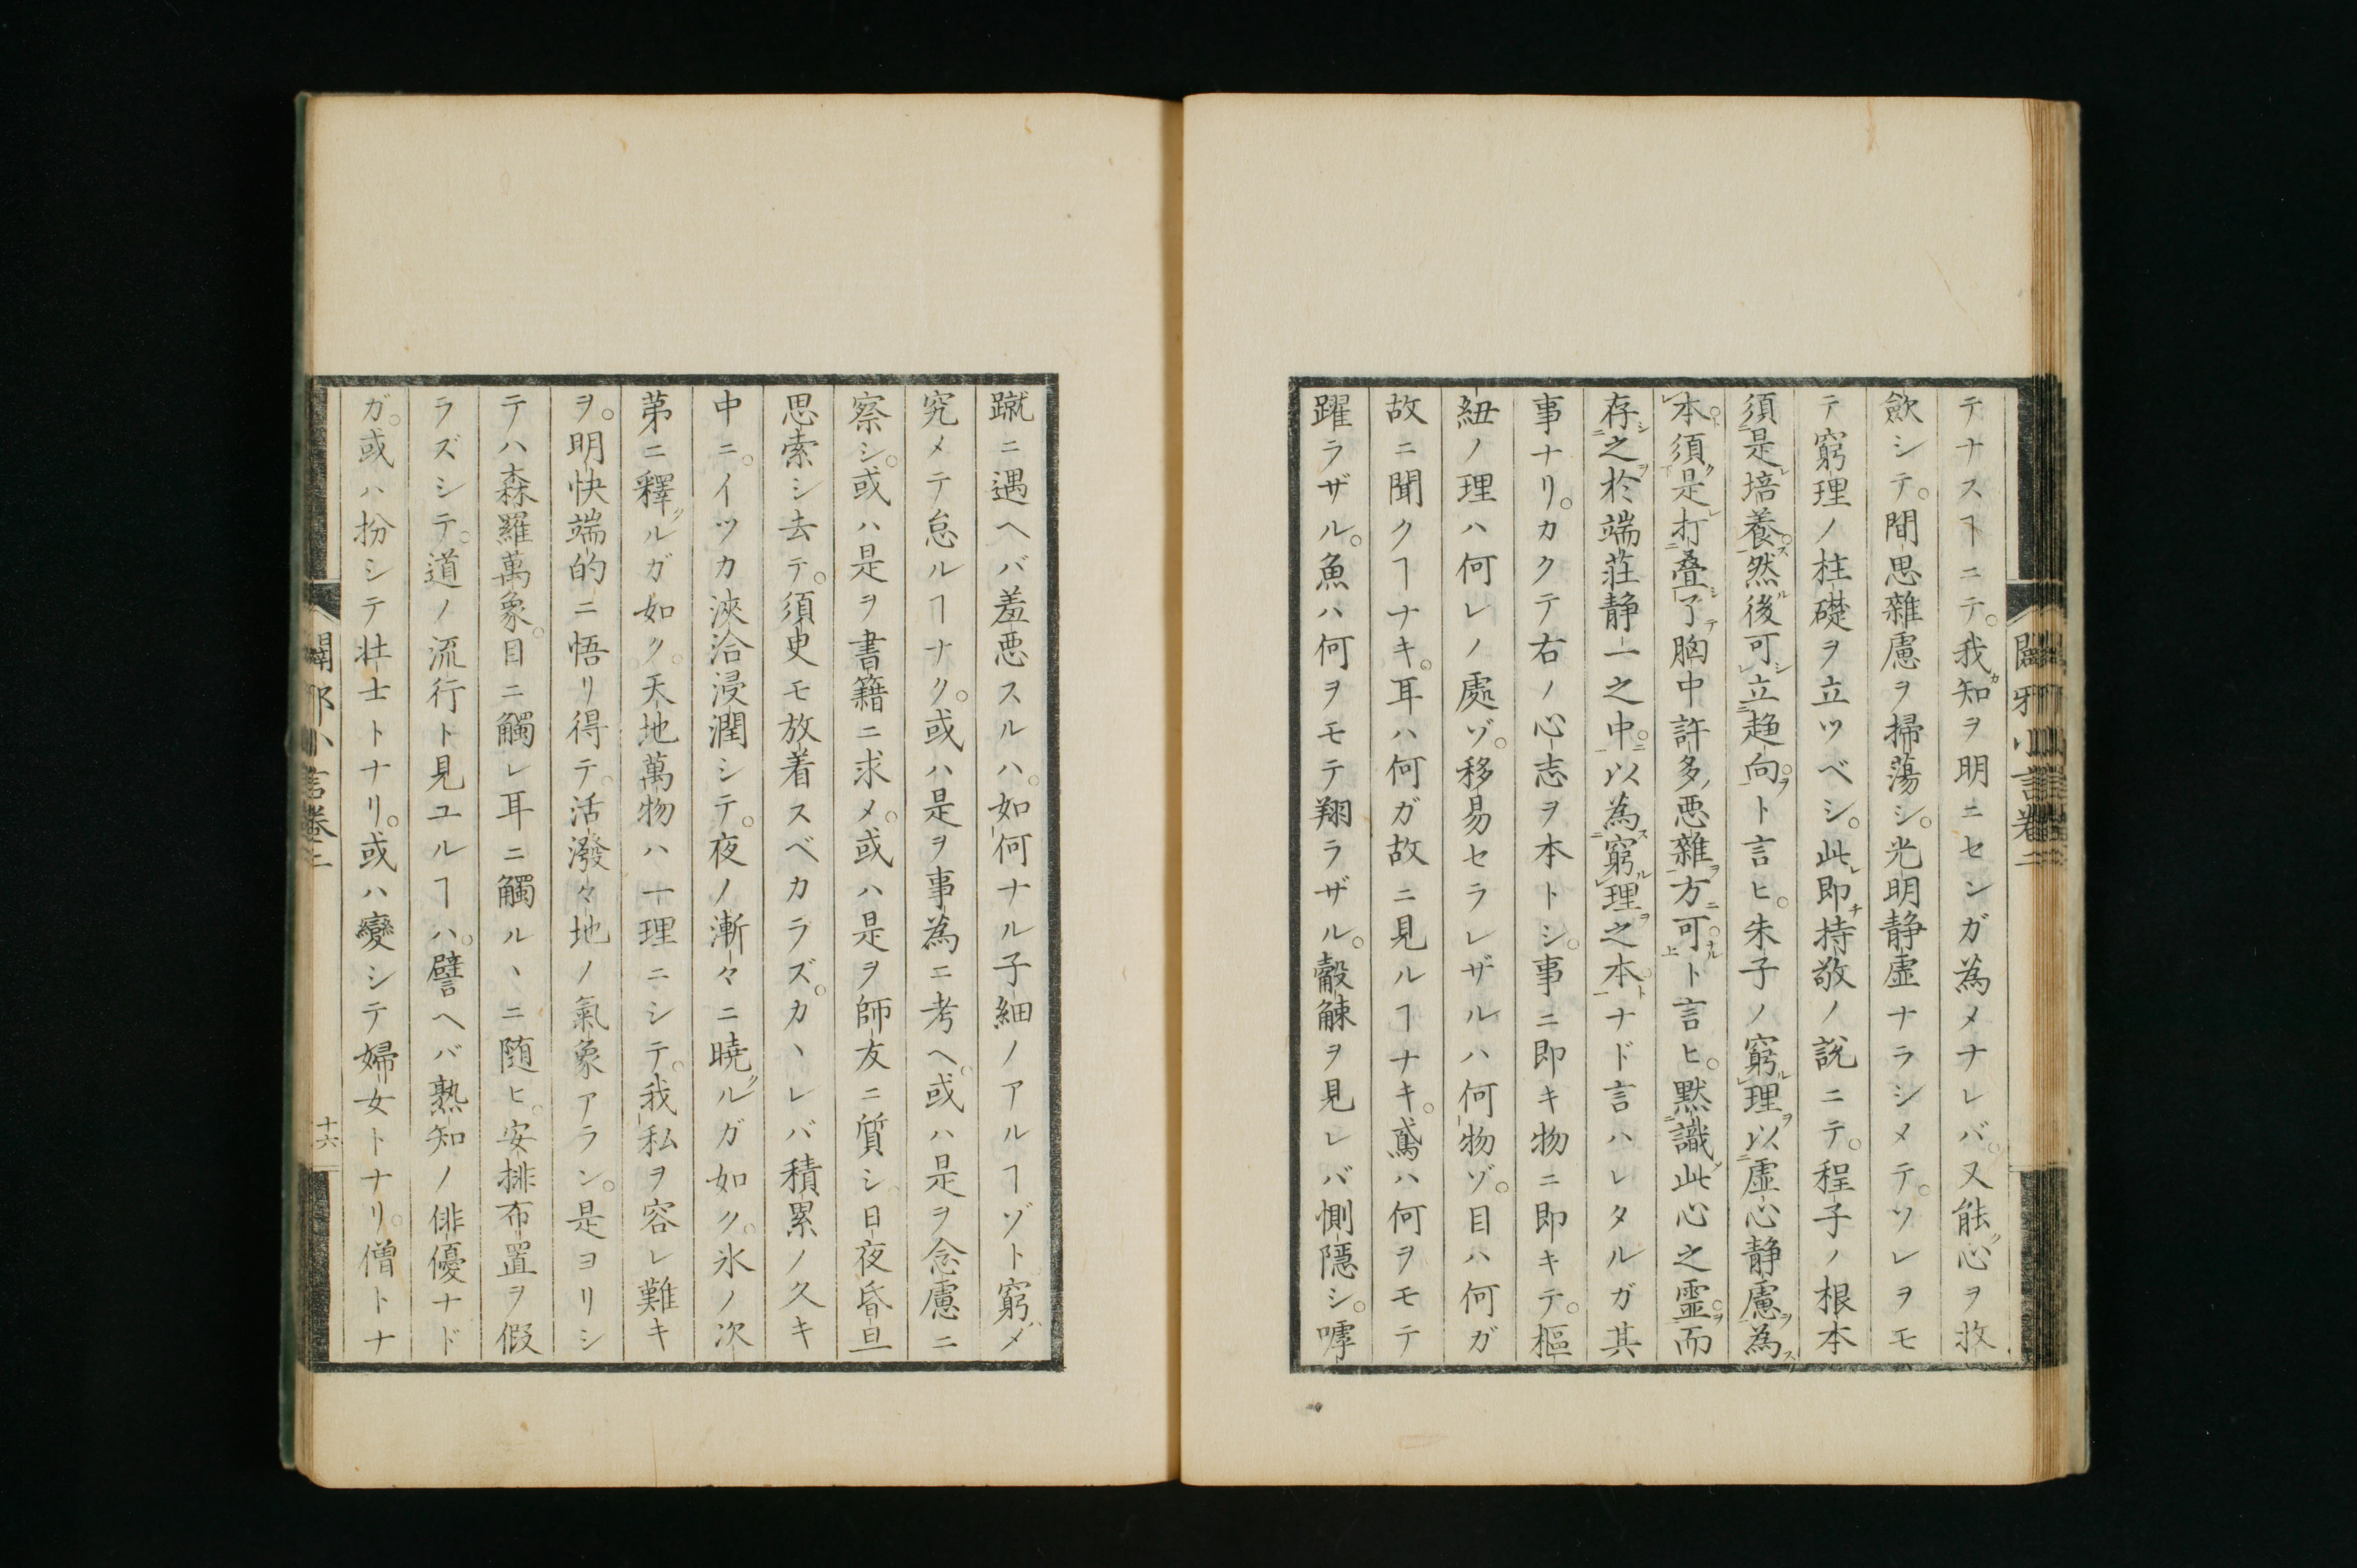 テナスヿニテ。我カ知ヲ明ニセンガ為メナレバ。又能ク心ヲ收
歛シテ。間思雜慮ヲ掃蕩シ。光明静虚ナラシメテ。ソレヲモ
テ窮理ノ柱礎ヲ立ツベシ。此レ即チ持敬ノ説ニテ。程子ノ根本
須是培養。然後可立趨向。ト言ヒ。朱子ノ窮理以虚心静慮為
本。須是打疊了胸中許多悪雜方可。ト言ヒ。黙識此心之霊。而
存之於端莊静一之中。以為窮理之本。ナド言ハレタルガ其
事ナリ。カクテ右ノ心志ヲ本トシ。事ニ即キ物ニ即キテ。樞
紐ノ理ハ何レノ處ゾ。移易セラレザルハ何物ゾ。目ハ何ガ
故ニ聞クヿナキ。耳ハ何ガ故ニ見ルヿナキ。鳶ハ何ヲモテ
躍ラザル。魚ハ何ヲモテ翔ラザル。觳觫ヲ見レバ惻隠シ。嘑
蹴ニ遇ヘバ羞悪スルハ。如何ナル子細ノアルヿゾト窮メ
究メテ怠ルヿナク。或ハ是ヲ事為ニ考ヘ。或ハ是ヲ念慮ニ
察シ。或ハ是ヲ書籍ニ求メ。或ハ是ヲ師友ニ質シ。日夜昏旦
思索シ去テ。須史モ放着スベカラズ。カヽレバ積累ノ久キ
中ニ。イツカ浹洽浸潤シテ。夜ノ漸々ニ曉クルガ如ク。氷ノ次
第ニ釋クルガ如ク。天地萬物ハ一理ニシテ。我私ヲ容レ難キ
ヲ。明快端的ニ悟リ得テ。活潑々地ノ氣象アラン。是ヨリシ
テハ森羅萬象。目ニ觸レ耳ニ觸ルヽニ随ヒ。安排布置ヲ假
ラズシテ。道ノ流行ト見ユルヿハ。譬ヘバ熟知ノ俳優ナド
ガ。或ハ扮シテ壮士トナリ。或ハ變シテ婦女トナリ。僧トナ
闢邪小言巻二
十六